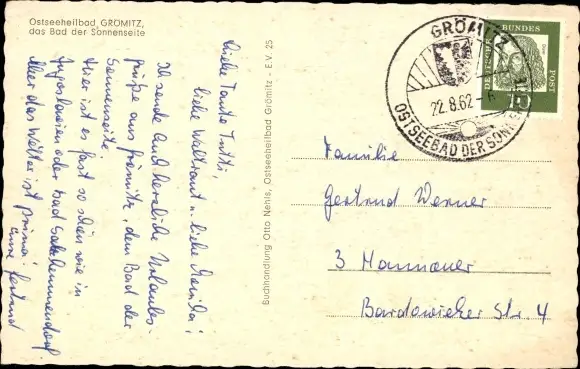 Ostseeheilbad GRÖMITZ,
das Bad der Sonnenseite
Liebe Tante Tutti,
liebe Waltraut u. liebe Monika!
Ich sende Euch herzliche Urlaubs-
grüße aus Grömitz, dem Bad der
Sonnenseite.
Hier ist es fast so schön wie in
Jugoslawien oder Bad Salzhemmendorf
Aber das Wetter ist prima!
Eure Gertrud
Buchhandlung Otto Nehls, Ostseeheilbad Grömitz - E.V. 25
GRÖMITZ
22.8.62
OSTSEEBAD DER SONNENSEITE
DEUTSCHE BUNDESPOST
Familie
Gertrud Werner
3 Hannover
Bardowicker Str. 4